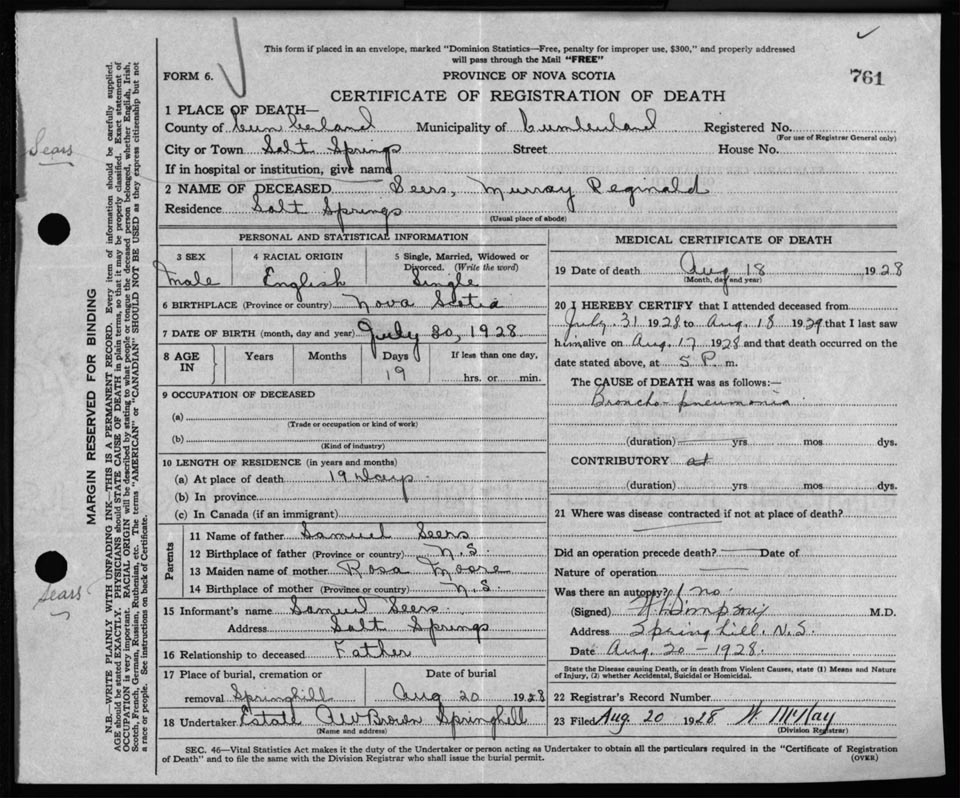 This form if placed in an envelope, marked "Dominion Statistics—Free, penalty for improper use, $300," and properly addressed
will pass through the Mail "FREE"
FORM 6.
PROVINCE OF NOVA SCOTIA
761
CERTIFICATE OF REGISTRATION OF DEATH
1 PLACE OF DEATH—
County of Cumberland Municipality of Cumberland Registered No.
(For use of Registrar General only)
City or Town Salt Springs Street House No.
If in hospital or institution, give name
2 NAME OF DECEASED Seers, Murray Reginald
Residence Salt Springs
(Usual place of abode)
Sears
Sears
MARGIN RESERVED FOR BINDING
N.B.—WRITE PLAINLY WITH UNFADING INK—THIS IS A PERMANENT RECORD. Every item of information should be carefully supplied.
AGE should be stated EXACTLY. PHYSICIANS should STATE CAUSE OF DEATH in plain terms, so that it may be properly classified. Exact statement of
OCCUPATION is very important. RACIAL ORIGIN will be described by stating to what people or tongue the deceased person belonged, whether English, Irish,
Scotch, French, German, Russian, Ruthenian, etc. The terms "AMERICAN" or "CANADIAN" SHOULD NOT BE USED as they express citizenship but not
a race or people. See instructions on back of Certificate.
PERSONAL AND STATISTICAL INFORMATION
3 SEX
4 RACIAL ORIGIN
5 Single, Married, Widowed or
Divorced. (Write the word)
Male English Single
6 BIRTHPLACE (Province or country) Nova Scotia
7 DATE OF BIRTH (month, day and year) July 30, 1928
8 AGE IN
Years Months Days If less than one day,
19 hrs. or min.
9 OCCUPATION OF DECEASED
(a)
(Trade or occupation or kind of work)
(b)
(Kind of industry)
10 LENGTH OF RESIDENCE (in years and months)
(a) At place of death 19 Days
(b) In province
(c) In Canada (if an immigrant)
Parents
11 Name of father Samuel Seers
12 Birthplace of father (Province or country) N.S.
13 Maiden name of mother Rosa Moore
14 Birthplace of mother (Province or country) N.S.
15 Informant's name Samuel Seers
Address Salt Springs
16 Relationship to deceased Father
17 Place of burial, cremation or Date of burial
removal Springhill Aug 20 1928
18 Undertaker Estate AW Brown Springhill
(Name and address)
MEDICAL CERTIFICATE OF DEATH
19 Date of death Aug 18 1928
(Month, day and year)
20 I HEREBY CERTIFY that I attended deceased from
July 31 1928 to Aug. 18 1929 that I last saw
him alive on Aug. 17 1928 and that death occurred on the
date stated above, at 5 P. m.
The CAUSE of DEATH was as follows:—
Broncho-pneumonia
(duration) yrs mos dys.
CONTRIBUTORY at
(duration) yrs mos dys.
21 Where was disease contracted if not at place of death?
Did an operation precede death? Date of
Nature of operation
Was there an autopsy? no.
(Signed) M.D.
Address Springhill. N.S.
Date Aug. 20 - 1928.
State the Disease causing Death, or in death from Violent Causes, state (1) Means and Nature
of Injury, (2) whether Accidental, Suicidal or Homicidal.
22 Registrar's Record Number
23 Filed Aug. 20 1928 W. McKay
(Division Registrar)
SEC. 46—Vital Statistics Act makes it the duty of the Undertaker or person acting as Undertaker to obtain all the particulars required in the "Certificate of Registration
of Death" and to file the same with the Division Registrar who shall issue the burial permit.
(OVER)